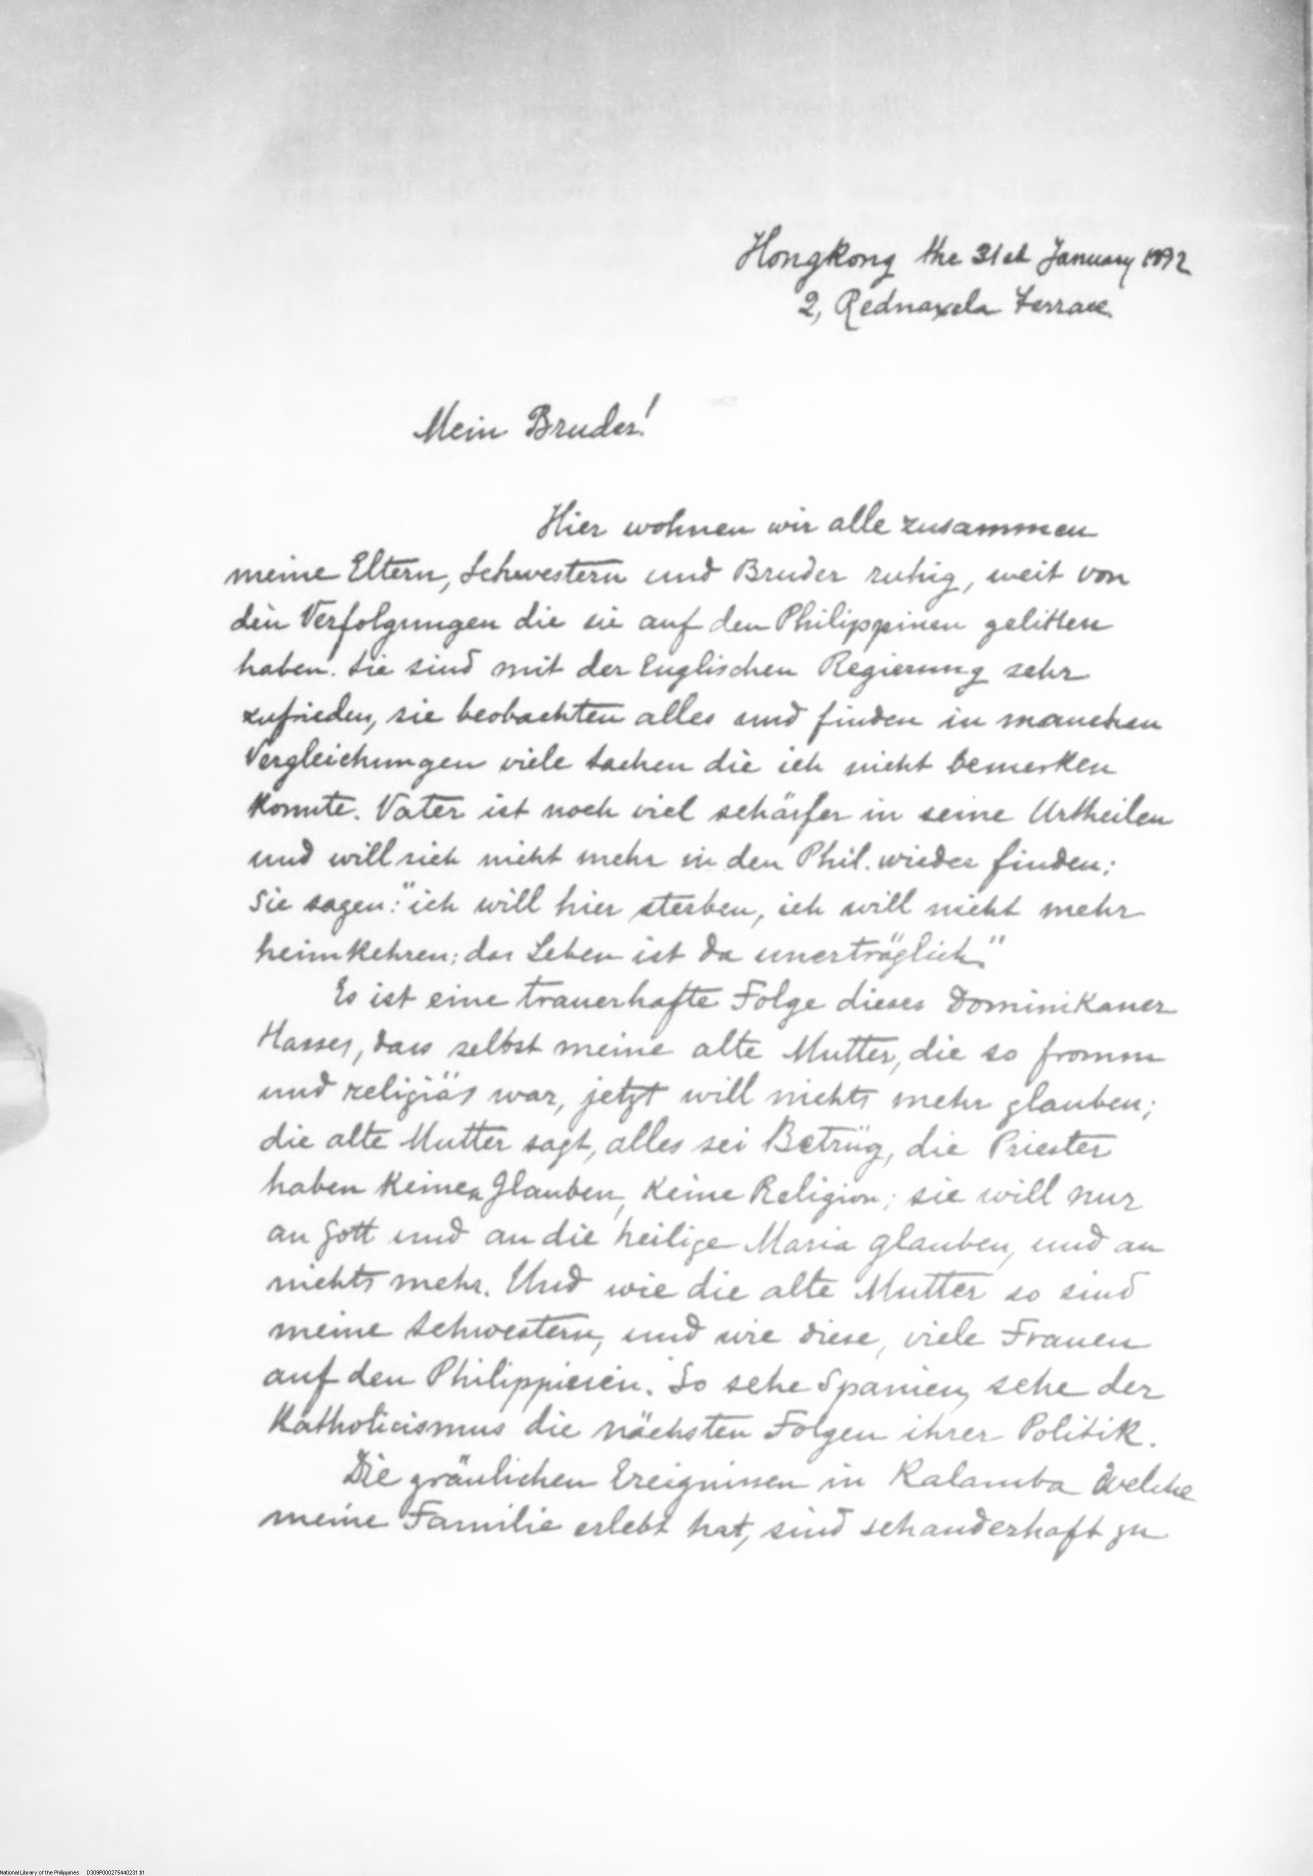 Hongkong the 31st January 1892
2, Rednaxela Terrace
Mein Bruder!
Hier wohnen wir alle zusammen
meine Eltern, Schwestern und Bruder ruhig, weit von
den Verfolgungen die sie auf den Philippinen gelitten
haben. Sie sind mit der Englischen Regierung sehr
zufrieden, sie beobachten alles und finden in manchen
Vergleichungen viele Sachen die ich nicht bemerken
konnte. Vater ist noch viel schärfer in seine Urtheilen
und will sich nicht mehr in den Phil. wieder finden;
Sie sagen: "ich will hier sterben, ich will nicht mehr
heimkehren; das Leben ist da unerträglich"
Es ist eine trauerhafte Folge dieses Dominikaner
Hasses, dass selbst meine alte Mutter, die so fromm
und religiäs war, jetzt will nichts mehr glauben;
die alte Mutter sagt, alles sei Betrüg, die Priester
haben keinen Glauben, keine Religion; sie will nur
an Gott und an die heilige Maria glauben, und an
nichts mehr. Und wie die alte Mutter so sind
meine Schwestern, und wie diese, viele Frauen
auf den Philippinen. So sehe Spanien, sehe der
Katholicismus die nächsten Folgen ihrer Politik.
Die gräulichen Ereignissen in Kalamba Welche
meine Familie erlebt hat, sind schauderhaft zu
National Library of the Philippines